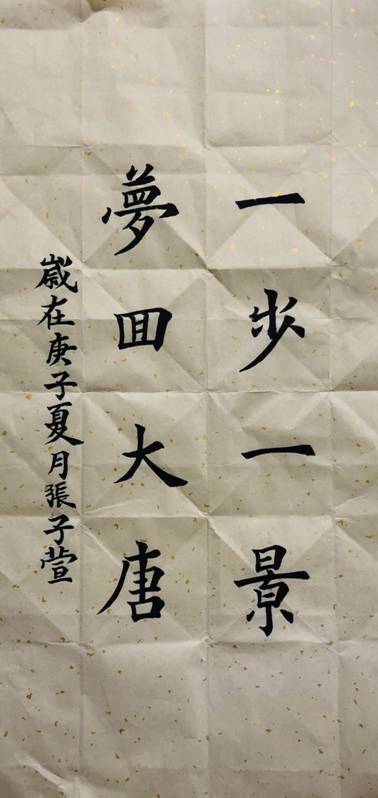 一步一景
夢回大唐
歲在庚子夏月張子萱